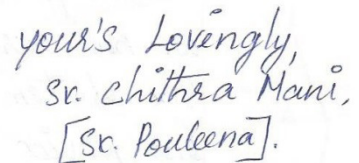 your's Lovingly,
Sr. Chithra Mani,
[Sr. Pouleena].